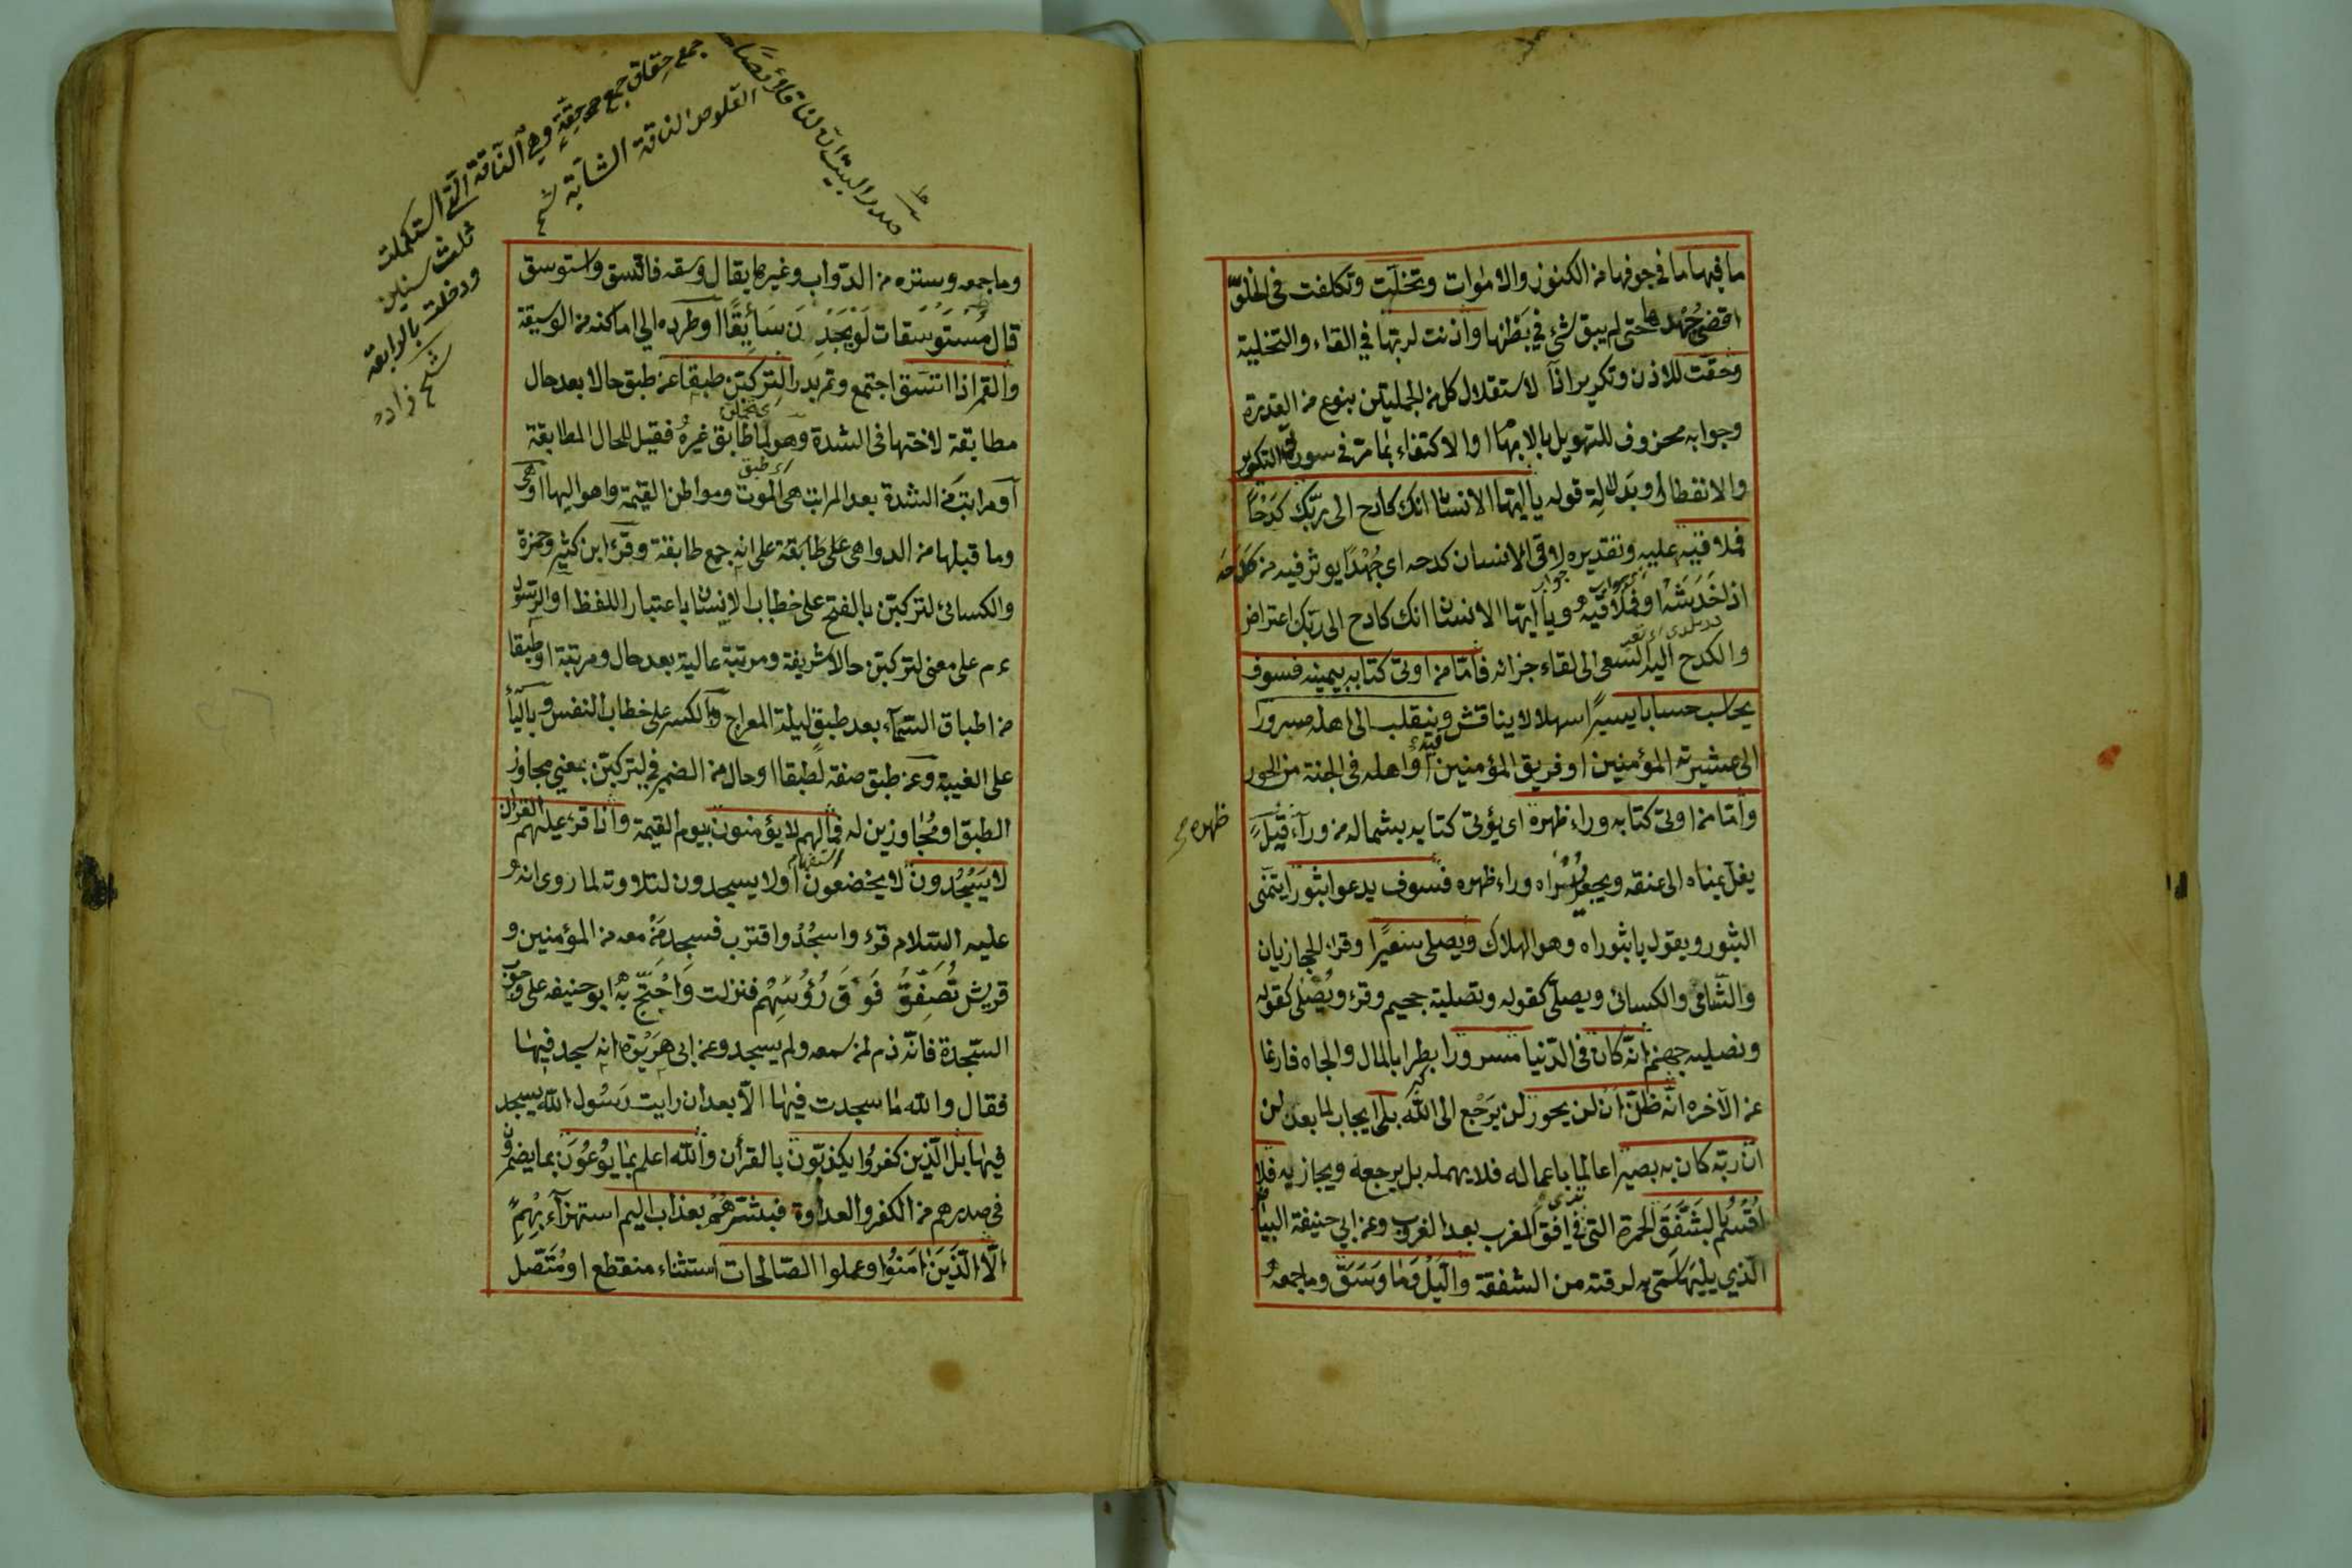 ما فيها ما في جوفها من الكنوز والاموات وتخلّت وتكلفت في الخلوّ
اقصى جُهدها حتى لم يبق شئ في بَطْنها واذنت لربها في القاء والتخلية
وحقّت للاذن وتكرير اذا لاستقلال كل من الجملتين بنوع من القدرة
وجوابه محذوف للتهويل بالابهام او الاكتفاء بما مرّ في سورتي التكوير
والانفطار او بدلالة قوله ياايها الانسان انك كادح الى ربّك كَدْحًا
فملاقيه عليه وتقديره لاقى الانسان كدحه اي جُهْدًا يوثر فيه من كَدَحَه
اذا خَدَشَه او فملاقيه وياايها الانسان انك كادح الى ربك اعتراض
والكدح اليه السّعى الى لقاء جزائه فامّا من اوتى كتابه بيمينه فسوف
يحاسب حسابا يسيرًا سهلا لا يناقش وينقلب الى اهله مسرورًا
الى عشيرته المؤمنين او فريق المؤمنين او اهله في الجنة من الحور
وأمّا من اوتى كتابه وراء ظهره اى يؤتى كتابه بشماله من وراء قيل
ظهره صح
يغلّ يمناه الى عنقه ويجعل يُسْراه وراء ظهره فسوف يدعوا ثبورا يتمنّى
الثبور ويقول ياثبوراه وهو الهلاك ويصلى سعيرًا وقرأ الحجازيان
والشّامى والكسائى ويصلّى كقوله وتصلية جحيم وقرئ ويُصْلى كقوله
ونصليه جهنم انّه كان في الدّنيا مسرورا بطرا بالمال والجاه فارغا
عن الآخره انّه ظنّ أن لن يحور لن يَرْجع الى الله بلى ايجاب لما بعد لن
انّ ربّه كان به بصيرا عالما باعماله فلا يهمله بل يرجعه ويجازيه فلا
اقْسُم بالشَّفَق الحمرة التى في افق المغرب بعد الغروب وعن ابي حنيفة البياض
الّذي يليها سمّى به لرقته من الشفقة والّيل وَما وسَق وما جمعه
صدر البيت ان لنا قلائصا
جمع حِقاق جمع حِقّةٍ وهي النّاقة الّتي استكملت
ثلث سنين
ودخلت بالرابعة
شيخ زاده
القلوص الناقة الشابّة
وما جمعه وستره من الدّواب وغيرها يقال وسقه فاتّسق واستوسق
قال مُسْتَوْسَقات لَوْ يَجَدْنَ سَائِقًا او طرده الى اماكنه من الوسيقة
والقمر اذا اتّسَق اجتمع وتم بدرا لتركبُنّ طبقا عن طبق حالا بعد حال
مطابقة لاختها في الشدة وهو لما طابق غيره فقيل للحال المطابقة
أو مراتب من الشدة بعد المراتب هى الموت ومواطن القيمة واهوالها او هى
وما قبلها من الدواهى على طابقة على انه جمع طابقة وقرأ ابن كثير وحمزة
والكسائى لتركبَنّ بالفتح على خطاب الانسان باعتبار اللفظ او الرسول
ءم على معنى لتركبَنّ حالا شريفة ومرتبة عالية بعد حال ومرتبة او طبقا
من اطباق السّماء بعد طبق ليلة المعراج وبالكسر على خطاب النفس وبالياء
على الغيبة وعن طبق صفة لطبقا او حال من الضمير في لتركبنّ بمعنى مجاوز
الطبق او مُجاوزين له فمالهم لا يؤمنون بيوم القيمة واذا قرئ عليهم القرآن
لا يَسْجُدون لا يخضعون او لا يسجدون لتلاوته لما روى انه
عليه السّلام قرء واسجُدْ واقترب فسجد مَنْ معه من المؤمنين و
قريش تُصَفِّقُ فَوْقَ رُؤُسِهِمْ فنزلت وَاحْتجّ به ابو حنيفه على وجوب
السّجدة فانّه ذم لمن سمعه ولم يسجد وعن ابى هرَيْرة انه سجد فيها
فقال والله ما سجدت فيها الّا بعد ان رايت رَسُول الله يسجد
فيها بل الّذين كفروا يكذّبون بالقرأن والله اعلم بما يُوعُونَ بما يضمرون
في صدرهم من الكفر والعداوة فبشّرهُمْ بعذاب اليم استهزاء بهم
الّا الّذين امَنُوا وعملوا الصّالحات استثناء منقطع او مُتّصل